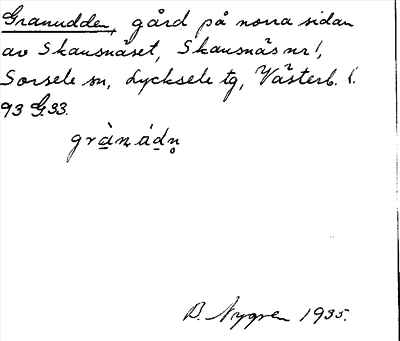 Granudden, gård på norra sidan
av Skansnäset, Skansnäs nr 1,
Sorsele sn, Lycksele tg, Västerb. l.
93 G33.
grànádn̥
B. Nygren 1935.